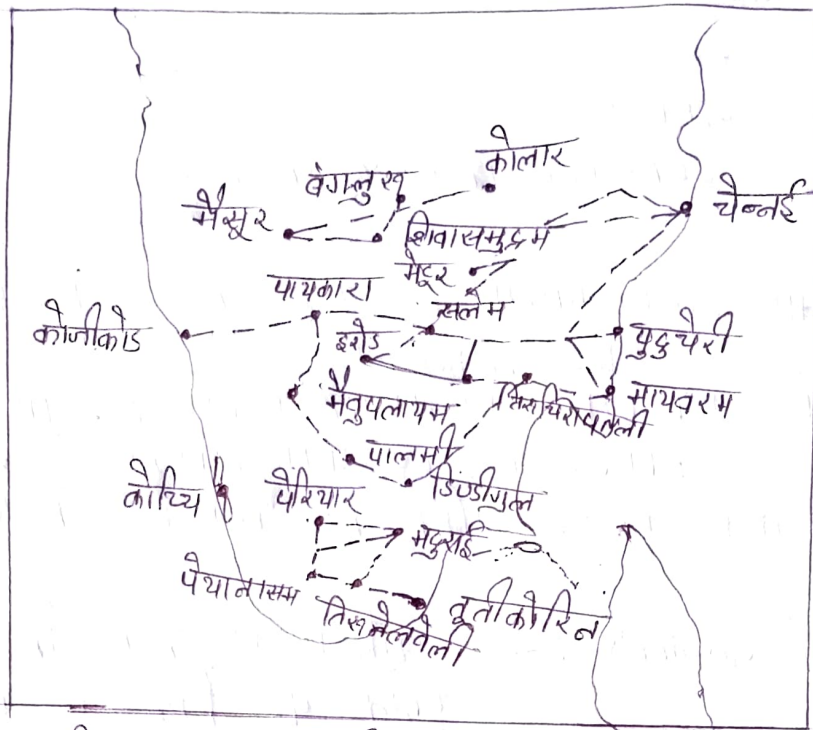 कोलार
बंगलुरु
मैसूर
चेन्नई
शिवासमुद्रम
मेटूर
पायकारा
सलेम
कोजीकोड
इरोड
पुदुचेरी
मैतुपलायम
तिरुचिरापल्ली
मायवरम
पालमी
डिण्डीगुल
कोच्चि
पेरियार
मदुराई
पेयानासम
तिरुनेलवेली
तूतीकोरिन